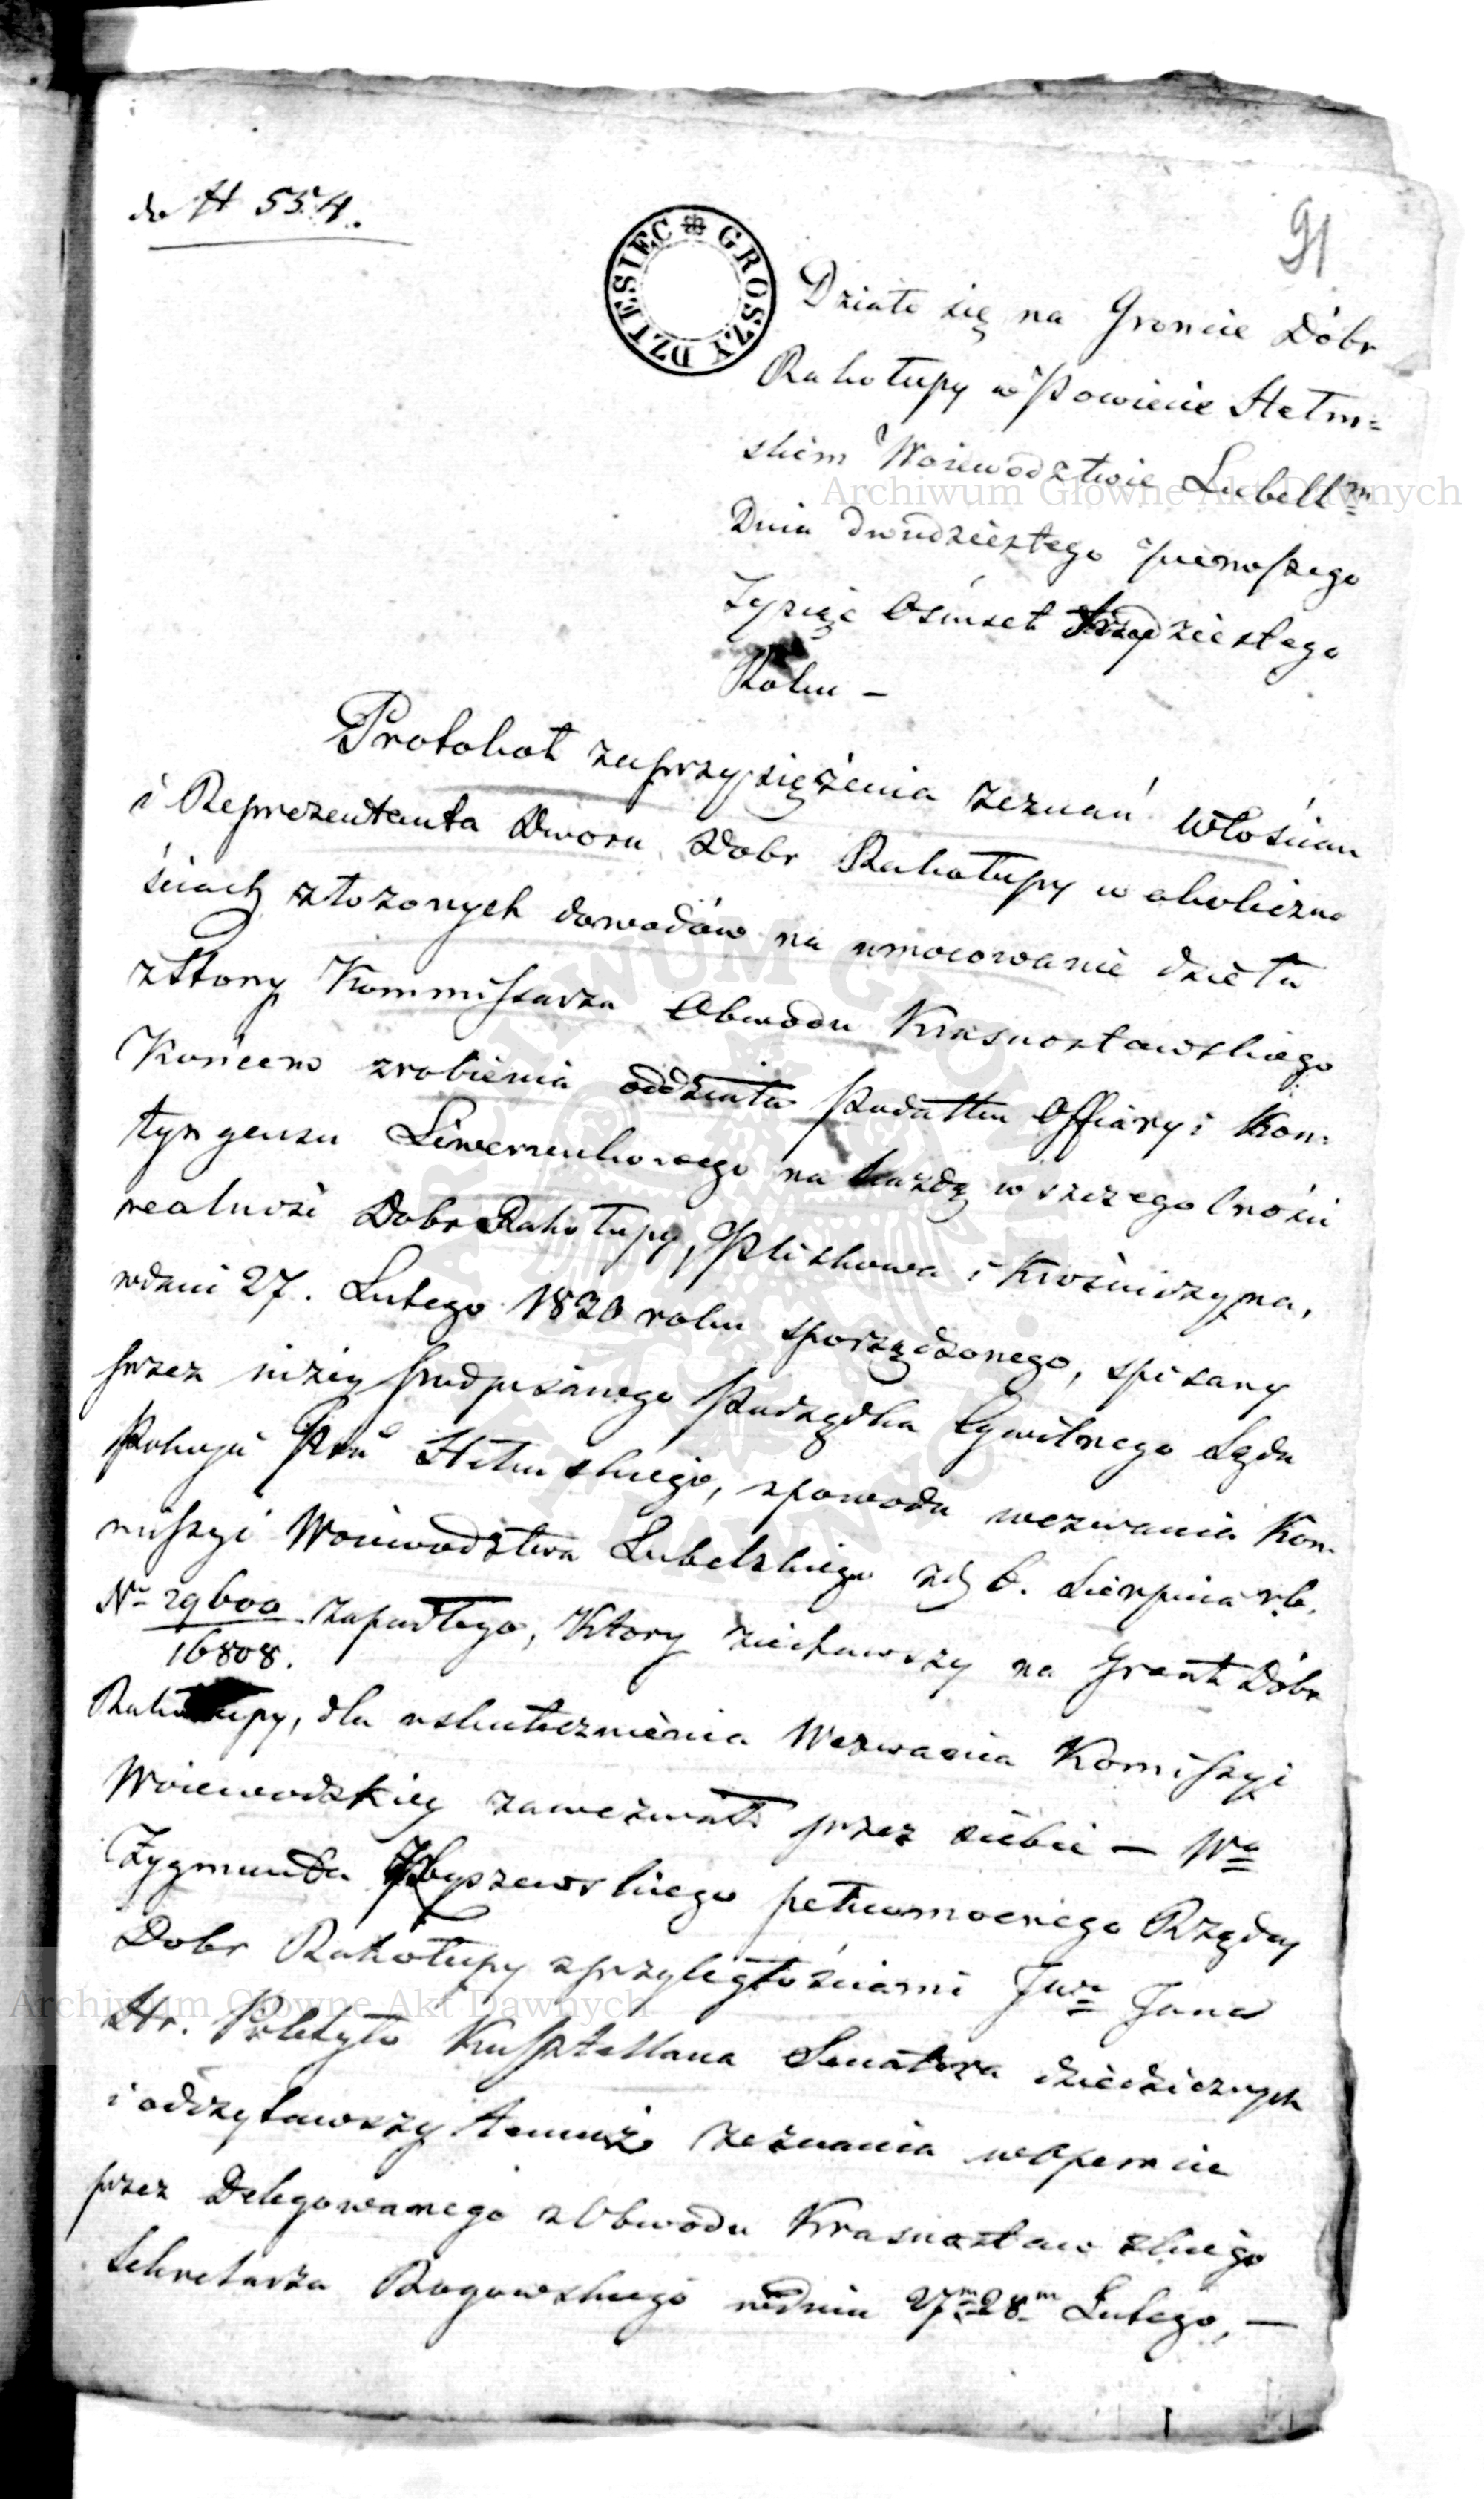 do N 554.
91
DZIESIEC GROSZY
Działo się na Groncie Dóbr
Rakołupy w Powiecie Hełm=
skiem Woiewodztwie Lubell m
Dnia dwudziestego pierwszego
Tysiąc Ośmset trzydziestego
Roku –
Protokoł zaprzysiężenia zeznań Włościan
i Reprezentanta Dworu Dobr Rakołupy w okoliczno
ściach złożonych dowodów na umocowanie dzieła
z Strony Kommissarza Obwodu Krasnostawskiego
Końcem zrobienia oddziału Podatku Offiary i Kon=
tyngensu Liwerunkowego na każdą w szczegolności
realność Dobr Rakołupy, Pliskowa i Krośniczyna,
w dniu 27. Lutego 1830 roku sporządzonego, spisany
przez niżey podpisanego Podsędka Cywilnego Sądu
Pokoju Ptu Hełmskiego, z powodu wezwania Kom=
missyi Woiewodztwa Lubelskiego z d 6. Sierpnia r.b.
Nr 29600/16808. zapadłego, Ktory ziechawszy na Gront Dóbr
Rakołupy, dla uskutecznienia Wezwania Komissyi
Woiewodzkiey zawezwał przez siebie – Wo
Zygmunta Zbyszewskiego pełnomocnego Rządcy
Dobr Rakołupy z przyległościami JWo Jana
Hr. Poletyło Kasztellana Senatora dziedzicznych
i odczytawszy temuż zeznania w Operacie
przez Delegowanego z Obwodu Krasnostawskiego
Sekretarza Rogowskiego w dniu 27m 28m Lutego, –
Archiwum Główne Akt Dawnych
Archiwum Główne Akt Dawnych
ARCHIWUM GŁÓWNE AKT DAWNYCH